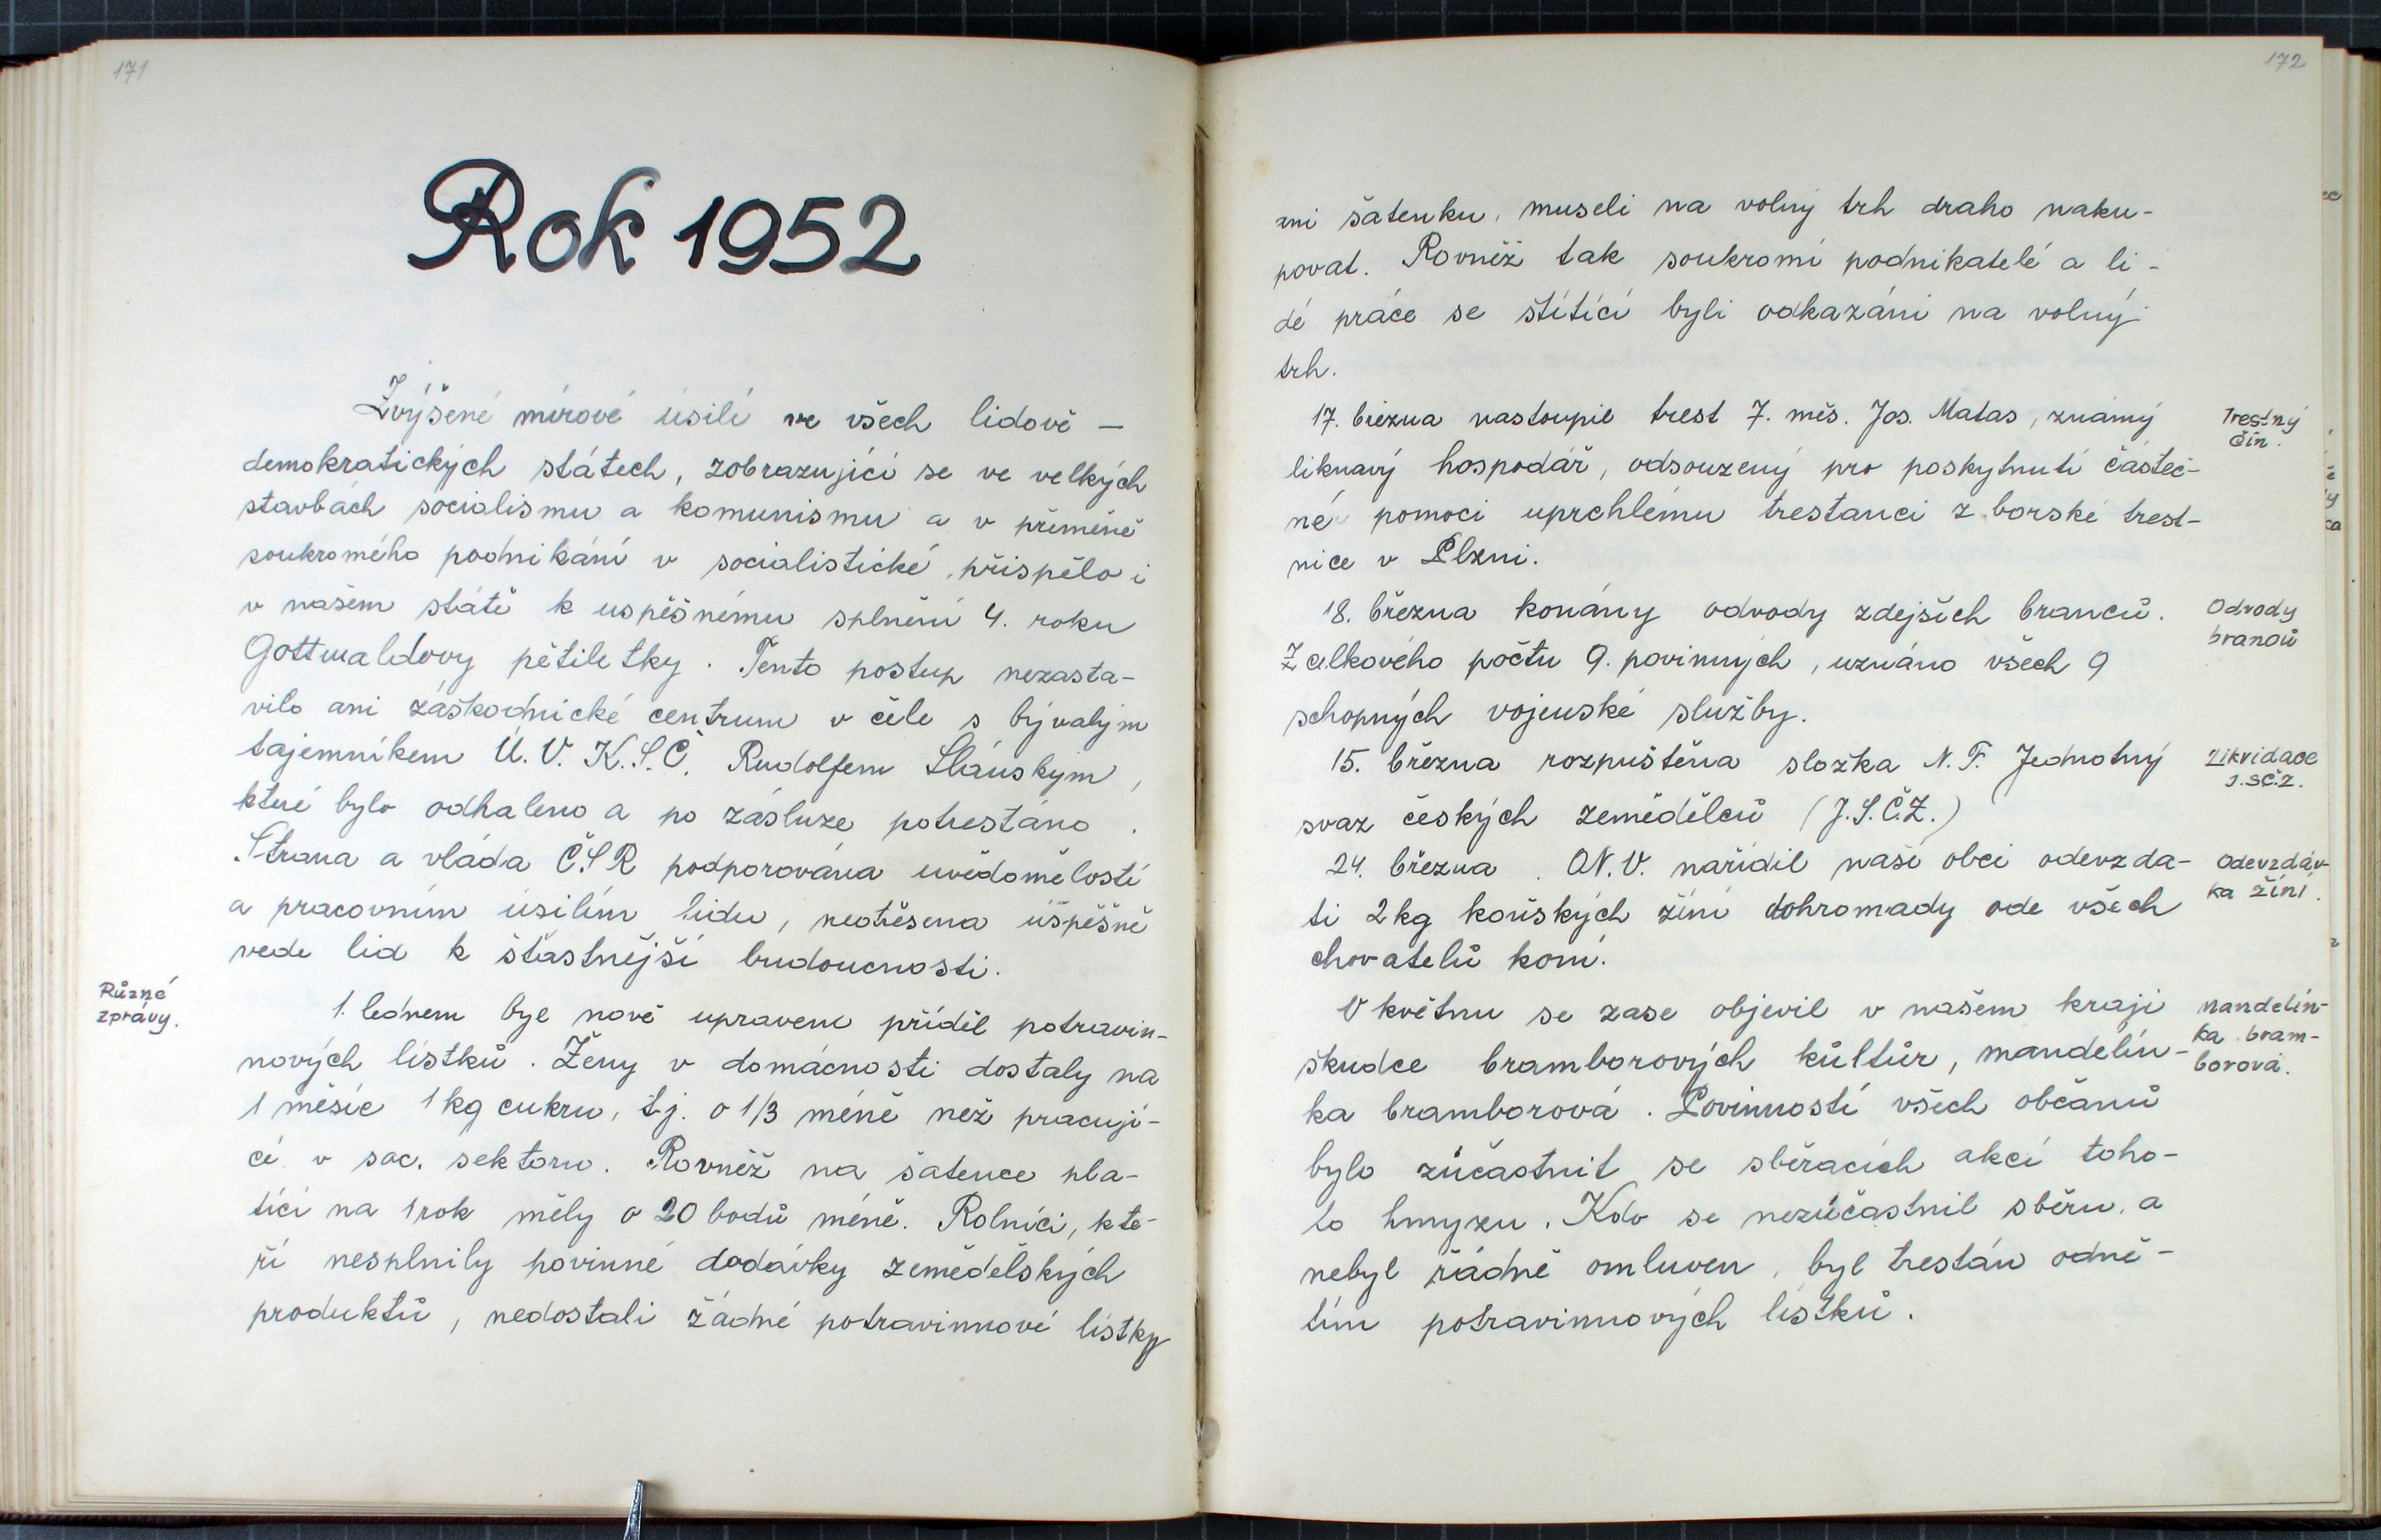 171
Rok 1952
Zvýšené mírové úsilí ve všech lidově –
demokratických státech, zobrazující se ve velkých
stavbách socialismu a komunismu a v přeměně
soukromého podnikání v socialistické, přispělo i
v našem státě k uspěšnému splnění 4. roku
Gottwaldovy pětiletky. Tento postup nezasta-
vilo ani záškodnické centrum v čele s bývalým
tajemníkem Ú.V. K.S.Č. Rudolfem Slánským,
které bylo odhaleno a po zásluze potrestáno.
Strana a vláda ČSR podporována uvědomělostí
a pracovním úsilím lidu, neotřesena úspěšně
vede lid k šťastnější budoucnosti.
Různé
zprávy.
1. lednem byl nově upraven příděl potravin-
nových lístků. Ženy v domácnosti dostaly na
1 měsíc 1 kg cukru, t.j. o 1/3 méně než pracují-
cí v soc. sektoru. Rovněž na šatence pla-
tící na 1 rok měly o 20 bodů méně. Rolníci, kte-
ří nesplnily povinné dodávky zemědělských
produktů, nedostali žádné potravinnové lístky
172
ani šatenku, museli na volný trh draho naku-
povat. Rovněž tak soukromí podnikatelé a li-
dé práce se štítící byli odkazáni na volný
trh.
17. března nastoupil trest 7. měs. Jos. Matas, známý
liknavý hospodář, odsouzený pro poskytnutí částeč-
né pomoci uprchlému trestanci z borské trest-
nice v Plzni.
Trestný
čin.
18. března konány odvody zdejších branců.
Z celkového počtu 9. povinných, uznáno všech 9
schopných vojenské služby.
Odvody
branců
15. března rozpuštěna složka N.F. Jednotný
svaz českých zemědělců (J.S.Č.Z.)
Likvidace
J.SČ.Z.
24. března ONV. nařídil naší obci odevzda-
ti 2 kg koňských žíní dohromady ode všech
chovatelů koní.
Odevzdáv-
ka žíní.
V květnu se zase objevil v našem kraji
škudce bramborových kůltůr, mandelín-
ka bramborová. Povinností všech občanů
bylo zúčastnit se sběracích akcí toho-
to hmyzu. Kdo se nezúčastnil sběru, a
nebyl řádně omluven, byl trestán odně-
tím potravinnových lístků.
Mandelín-
ka bram-
borová.